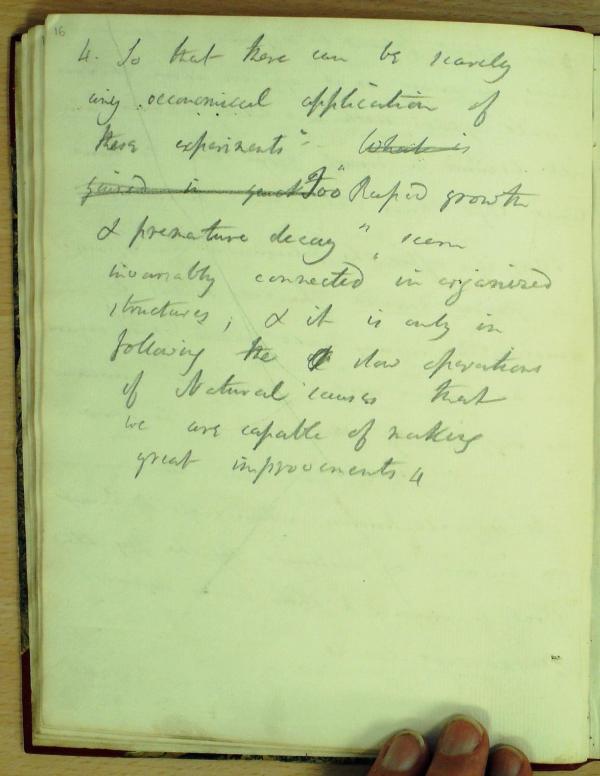 16
4. So that there can be scarcely
any oeconomical application of
these experiments" - What is
gained in quick Too "Rapid growth
& premature decay" seem
invariably connected in organized
structures; & it is only in
following the slow operations
of Natural causes that
we are capable of making
great improvements. 4